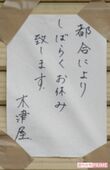 都合により
しばらくお休み
致します。
木津屋